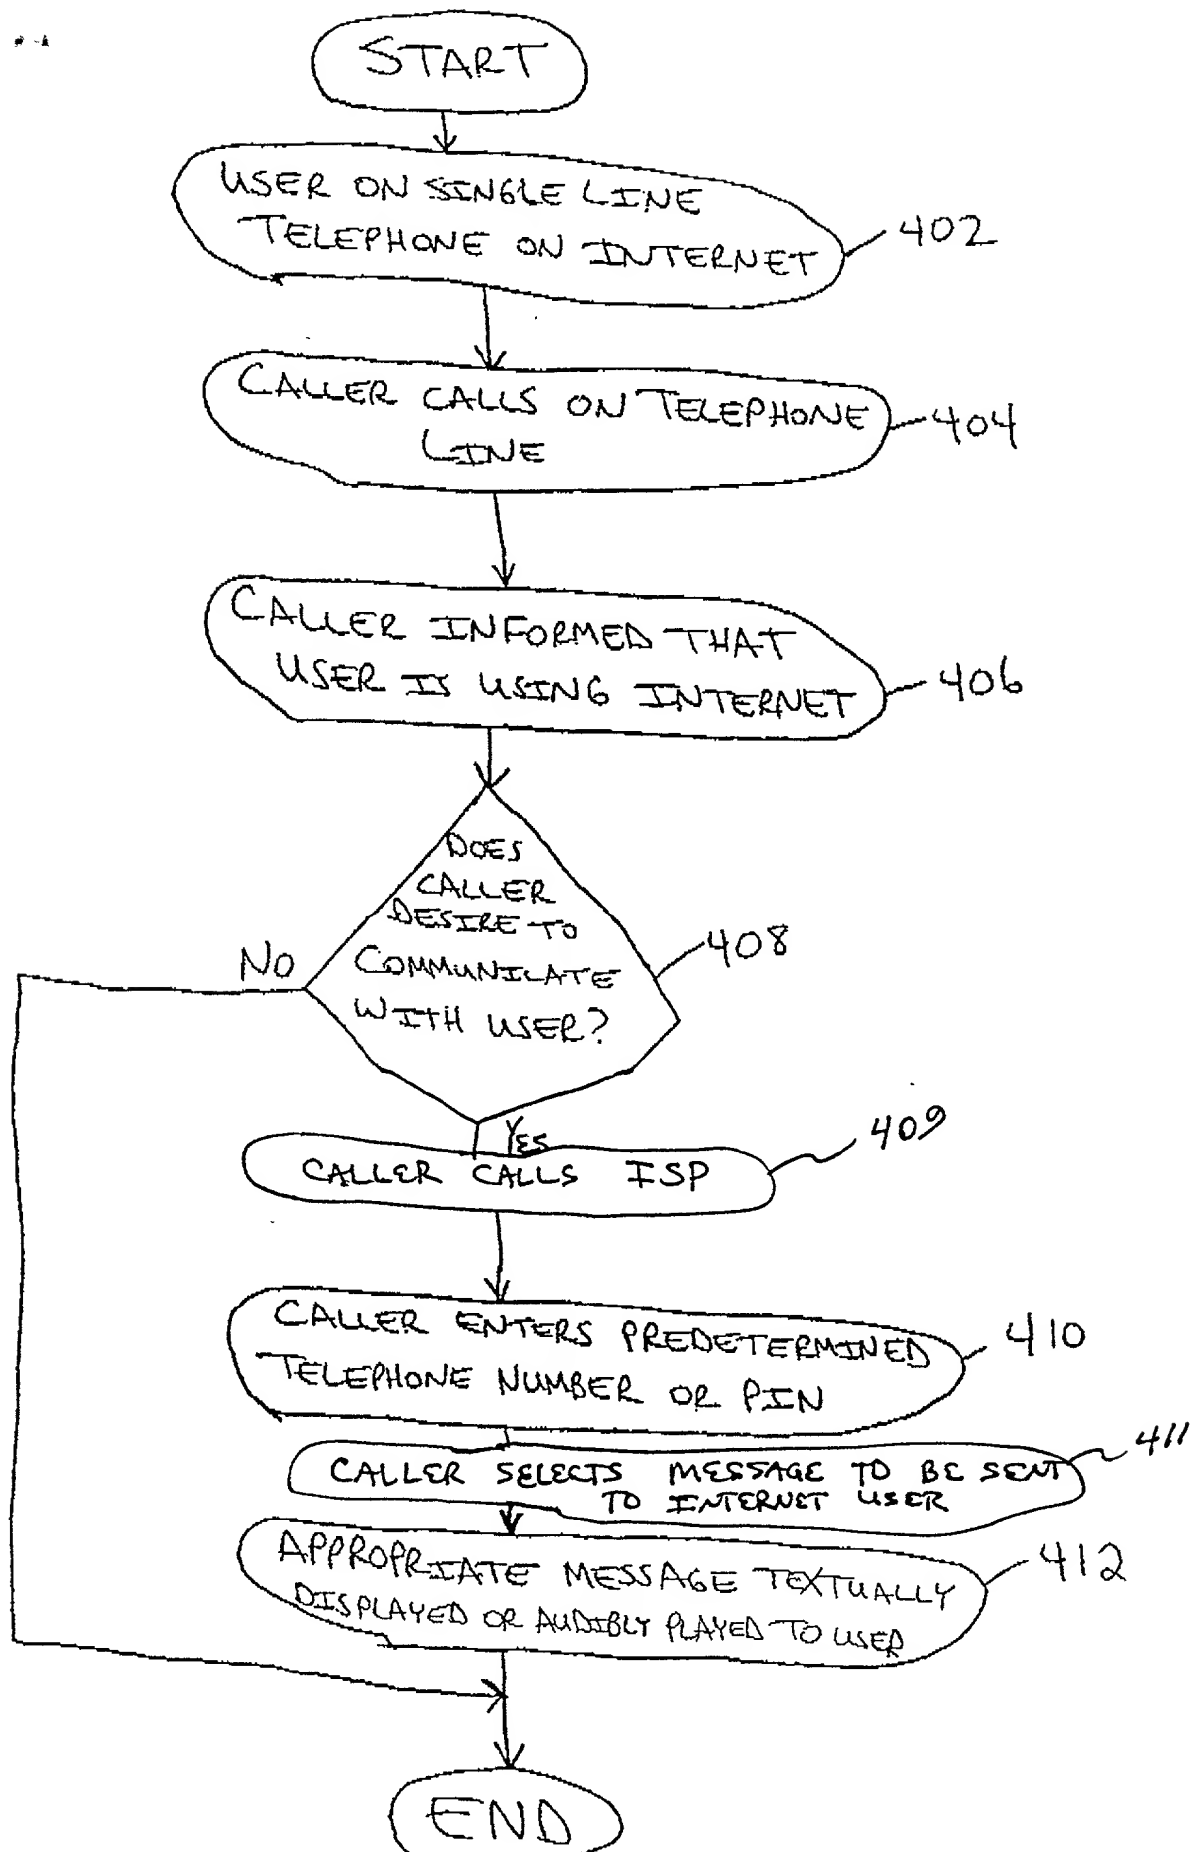 START
USER ON SINGLE LINE
TELEPHONE ON INTERNET
402
CALLER CALLS ON TELEPHONE
LINE
404
CALLER INFORMED THAT
USER IS USING INTERNET
406
DOES
CALLER
DESIRE TO
COMMUNICATE
WITH USER?
408
NO
YES
409
CALLER CALLS ISP
CALLER ENTERS PREDETERMINED
TELEPHONE NUMBER OR PIN
410
CALLER SELECTS MESSAGE TO BE SENT
TO INTERNET USER
411
APPROPRIATE MESSAGE TEXTUALLY
DISPLAYED OR AUDIBLY PLAYED TO USER
412
END